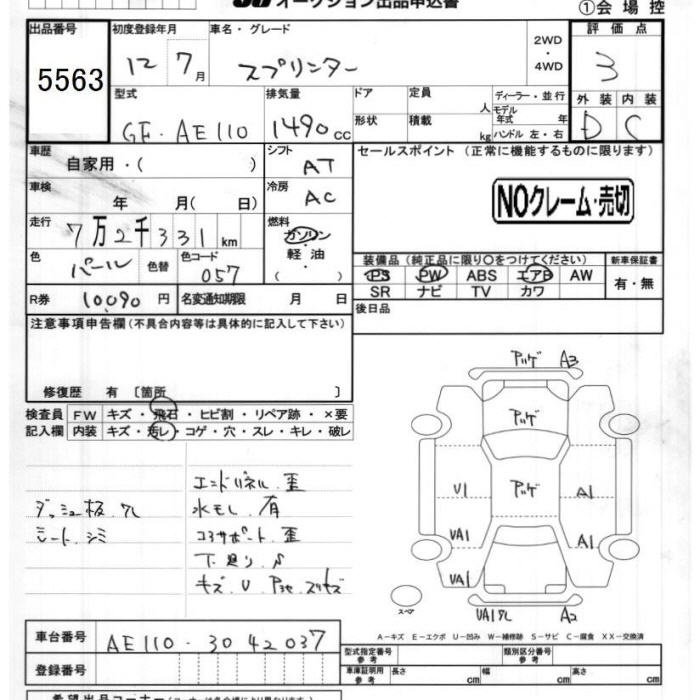 オークション出品申込書
①会場控
出品番号 初度登録年月 車名・グレード 評価点
5563 12 7月 スプリンター 2WD・4WD 3
型式 排気量 ドア 定員 人 ディーラー・並行 外装 内装
GF・AE110 1490cc 形状 積載 kg モデル年式 年 ハンドル 左・右 D C
車歴 シフト セールスポイント (正常に機能するものに限ります)
自家用・( ) AT
車検 冷房
年 月( 日) AC
NOクレーム・売切
走行 燃料
7万2千331km ガソリン・軽油
装備品 (純正品に限り〇をつけてください) 新車保証書
色 パール 色替 色コード 057 ( )
PS PW ABS エアB AW 有・無
SR ナビ TV カワ
R券 10,090円 名変通知期限 月 日
後日品
注意事項申告欄 (不具合内容等は具体的に記入して下さい)
修復歴 有 〔箇所 〕
検査員 FW キズ・飛石・ヒビ割・リペア跡・×要
記入欄 内装 キズ・汚レ・コゲ・穴・スレ・キレ・破レ
アッゲ A3
アッゲ
U1 アッゲ A1
UA1 A1
UA1
スペア UA1 クレ A2
エンドパネル 歪
ダッシュ板 クレ 水モレ 有
シート シミ コアサポート 歪
下廻り S
キズ U
A−キズ E−エクボ U−凹み W−補修跡 S−サビ C−腐食 XX−交換済
車台番号 AE110-3042037
登録番号
型式指定番号 参考 類別区分番号 参考
車庫証明用 参考 長さ cm 幅 cm 高さ cm
希望出品コーナー